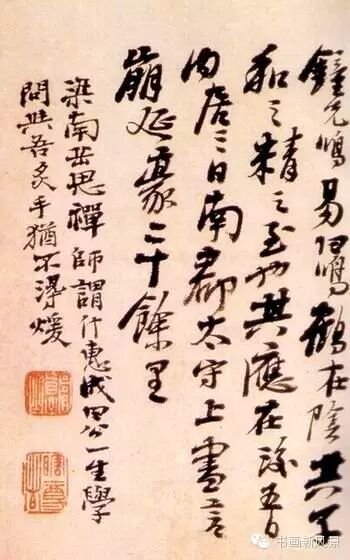 鐘先鳴易曰鳴鶴在陰其子
和之精之至也其應在後五日
內居三日南郡太守上書言
崩延袤二十餘里
梁南岳思禪師謂惠成曰公一生學
問與吾炙手猶不得煖
书画新风景